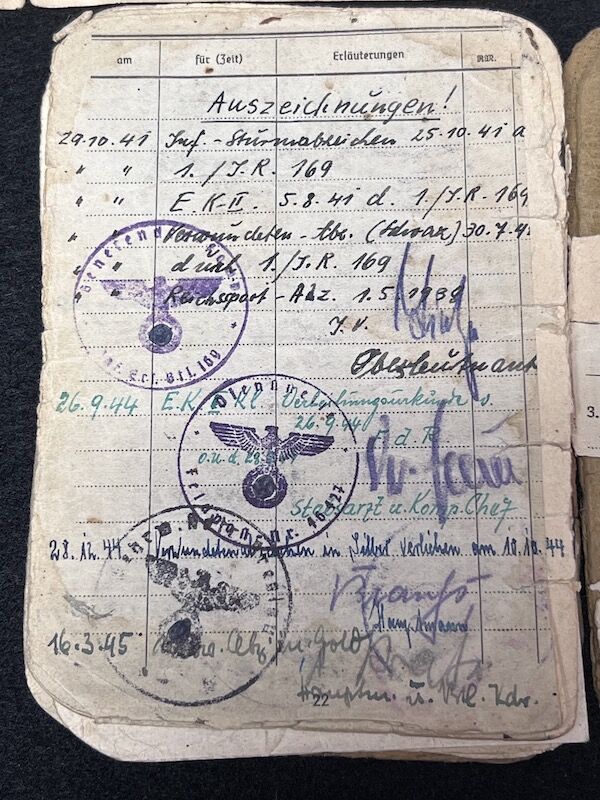 am für (Zeit) Erläuterungen RM.
Auszeichnungen!
29.10.41 Inf.-Sturmabzeichen 25.10.41 d
" " 1./J.R. 169
" " E.K.II. 5.8.41 d. 1./J.R. 169
" " Verwundeten-Abz. (Schwarz) 30.7.4
" " durch 1./J.R. 169
" " Reichssport-Abz. 1.5.1938
J.V.
Oberleutnant
Inf. Ers. Btl. 169
26.9.44 E.K. Kl. Verleihungsurkunde v.
26.9.44
F.d.R.
o.u.d.
Stabsarzt u. Komp. Chef
Dienststelle
Feldpostnr. 46427
28.12.44 Verwundetenabzeichen in Silber verliehen am 10.10.44
Hauptmann
16.3.45 Abz. in Gold
Hauptm. u. Btl. Kdr.
22
3.